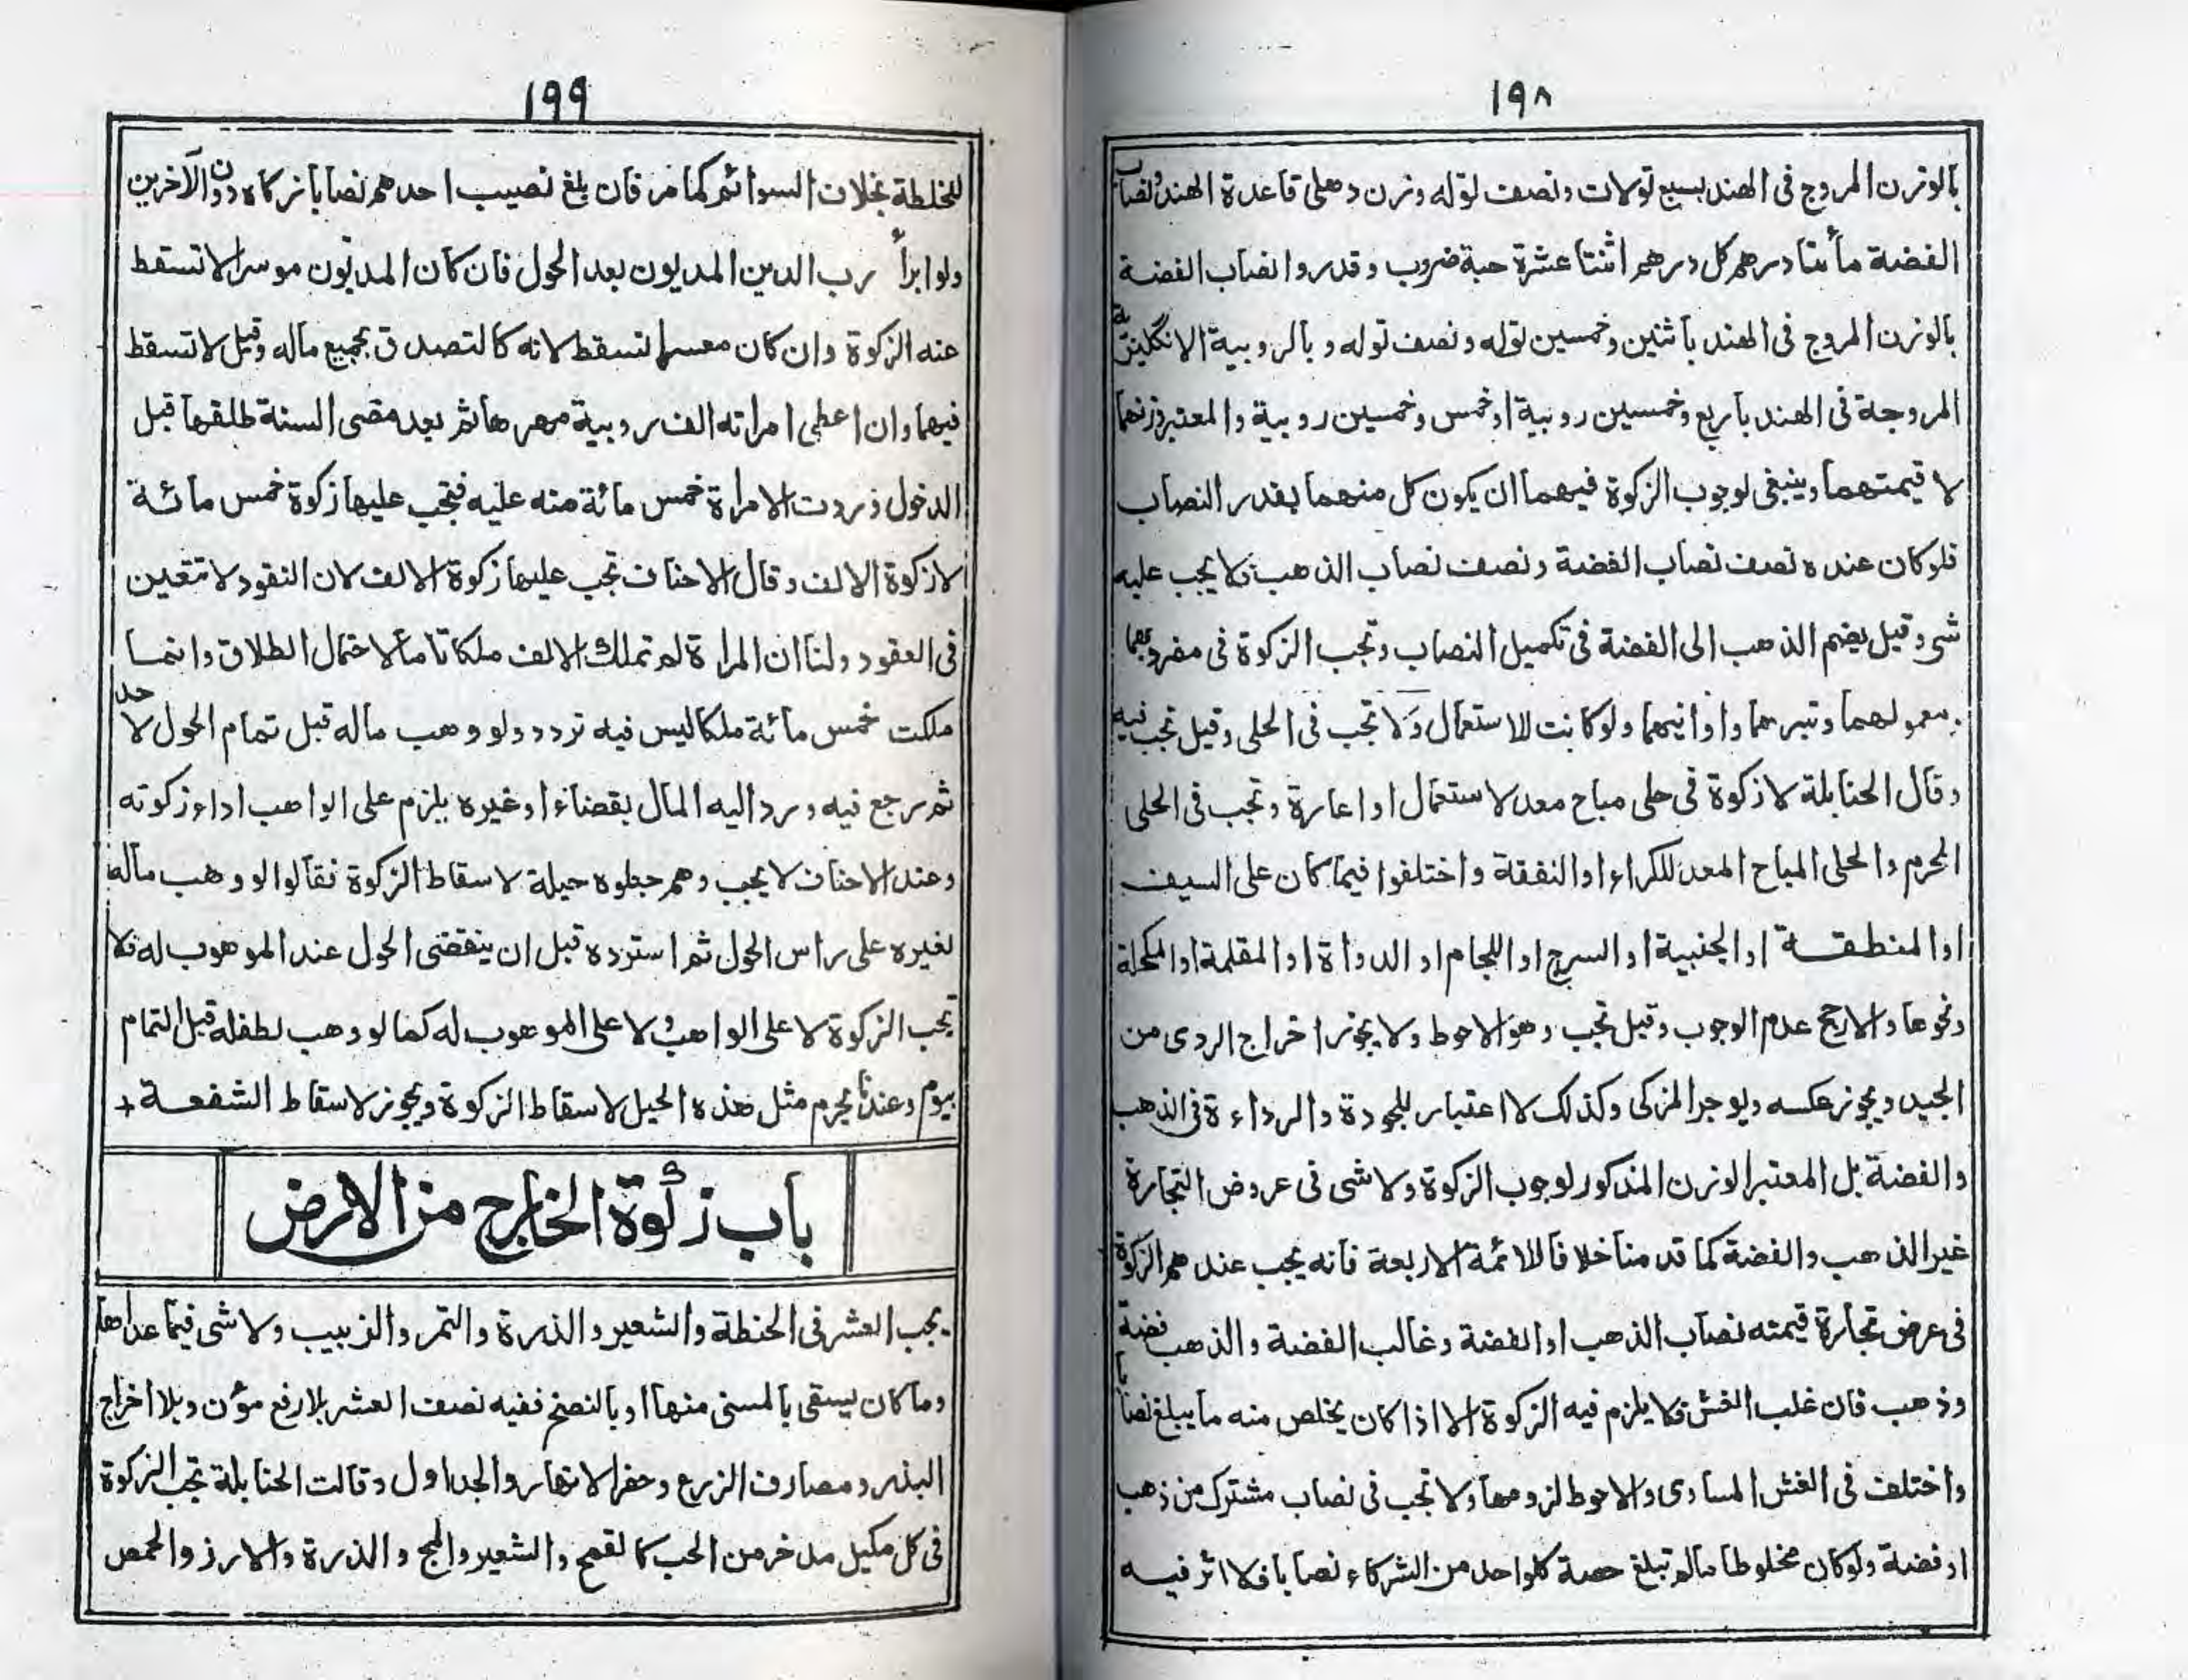 ١٩٨
بالوزن المروج فى الهند بسبع تولات ونصف توله وزن دهلى قاعدة الهند ونصاب
الفضة مائتا درهم كل درهم اثنتا عشرة حبة خروب وقدروا نصاب الفضة
بالوزن المروج فى الهند باثنين وخمسين توله ونصف توله وبالروبية الانكليزية
المروجة فى الهند باربع وخمسين روبية او خمس وخمسين روبية والمعتبر وزنهما
لا قيمتهما وينبغى لوجوب الزكوة فيهما ان يكون كل منهما بقدر النصاب
فلو كان عنده نصف نصاب الفضة ونصف نصاب الذهب فلا يجب عليه
شى وقيل يضم الذهب الى الفضة فى تكميل النصاب وتجب الزكوة فى مضروبهما
ومعمولهما وتبرهما واوانيهما ولو كانت للاستعمال ولا تجب فى الحلى وقيل تجب فيه
وقال الحنابلة لا زكوة فى حلى مباح معد لاستعمال او اعارة وتجب فى الحلى
المحرم والحلى المباح المعد للكراء او النفقة واختلفوا فيما كان على السيف
او المنطقة او الجنبية او السرج او اللجام او الدواة او المقلمة او المكحلة
ونحوها والارجح عدم الوجوب وقيل تجب وهو الاحوط ولا يجوز اخراج الردى من
الجيد ويجوز عكسه ويوجر المزكى وكذلك لا اعتبار للجودة والرداءة فى الذهب
والفضة بل المعتبر الوزن المذكور لوجوب الزكوة ولا شى فى عروض التجارة
غير الذهب والفضة كما قدمنا خلافا للائمة الاربعة فانه يجب عندهم الزكوة
فى عرض تجارة قيمته نصاب الذهب او الفضة وغالب الفضة والذهب فضة
وذهب فان غلب الغش فلا يلزم فيه الزكوة الا اذا كان يخلص منه ما يبلغ نصابا
واختلف فى الغش المساوى والاحوط لزومها ولا تجب فى نصاب مشترك من ذهب
او فضة ولو كان مخلوطا مالم تبلغ حصة كلواحد من الشركاء نصابا فلا اثر فيه
١٩٩
للخلطة بخلاف السوائم كما مر فان بلغ نصيب احدهم نصابا زكاه دون الآخرين
ولو ابرأ رب الدين المديون بعد الحول فان كان المديون موسرا لا تسقط
عنه الزكوة وان كان معسرا تسقط لانه كالتصدق بجميع ماله وقيل لا تسقط
فيهما وان اعطى امراته الف روبية مهرها ثم بعد مضى السنة طلقها قبل
الدخول فردت الامراة خمس مائة منه عليه فيجب عليها زكوة خمس مائة
لا زكوة الالف وقال الاحناف تجب عليها زكوة الالف لان النقود لا تتعين
فى العقود ولنا ان المراة لم تملك الالف ملكا تاما لاحتمال الطلاق وانما
ملكت خمس مائة ملكا ليس فيه تردد ولو وهب ماله قبل تمام الحول لاحد
ثم رجع فيه ورد اليه المال بقضاء او غيره يلزم على الواهب اداء زكوته
وعند الاحناف لا يجب وهم جعلوه حيلة لاسقاط الزكوة فقالوا لو وهب ماله
لغيره على راس الحول ثم استرده قبل ان ينقضى الحول عند الموهوب له فلا
تجب الزكوة لا على الواهب ولا على الموهوب له كما لو وهب لطفله قبل التمام
بيوم وعندنا يحرم مثل هذه الحيل لاسقاط الزكوة ويجوز لاسقاط الشفعة +
باب زكوة الخارج من الارض
يجب العشر فى الحنطة والشعير والذرة والتمر والزبيب ولا شى فيما عداها
وما كان يسقى بالمسنى منها او بالنضح ففيه نصف العشر بلا رفع مؤن وبلا اخراج
البذر ومصارف الزرع وحفر الانهار والجداول وقالت الحنابلة تجب الزكوة
فى كل مكيل مدخر من الحب كالقمح والشعير والمج والذرة والارز والحمص